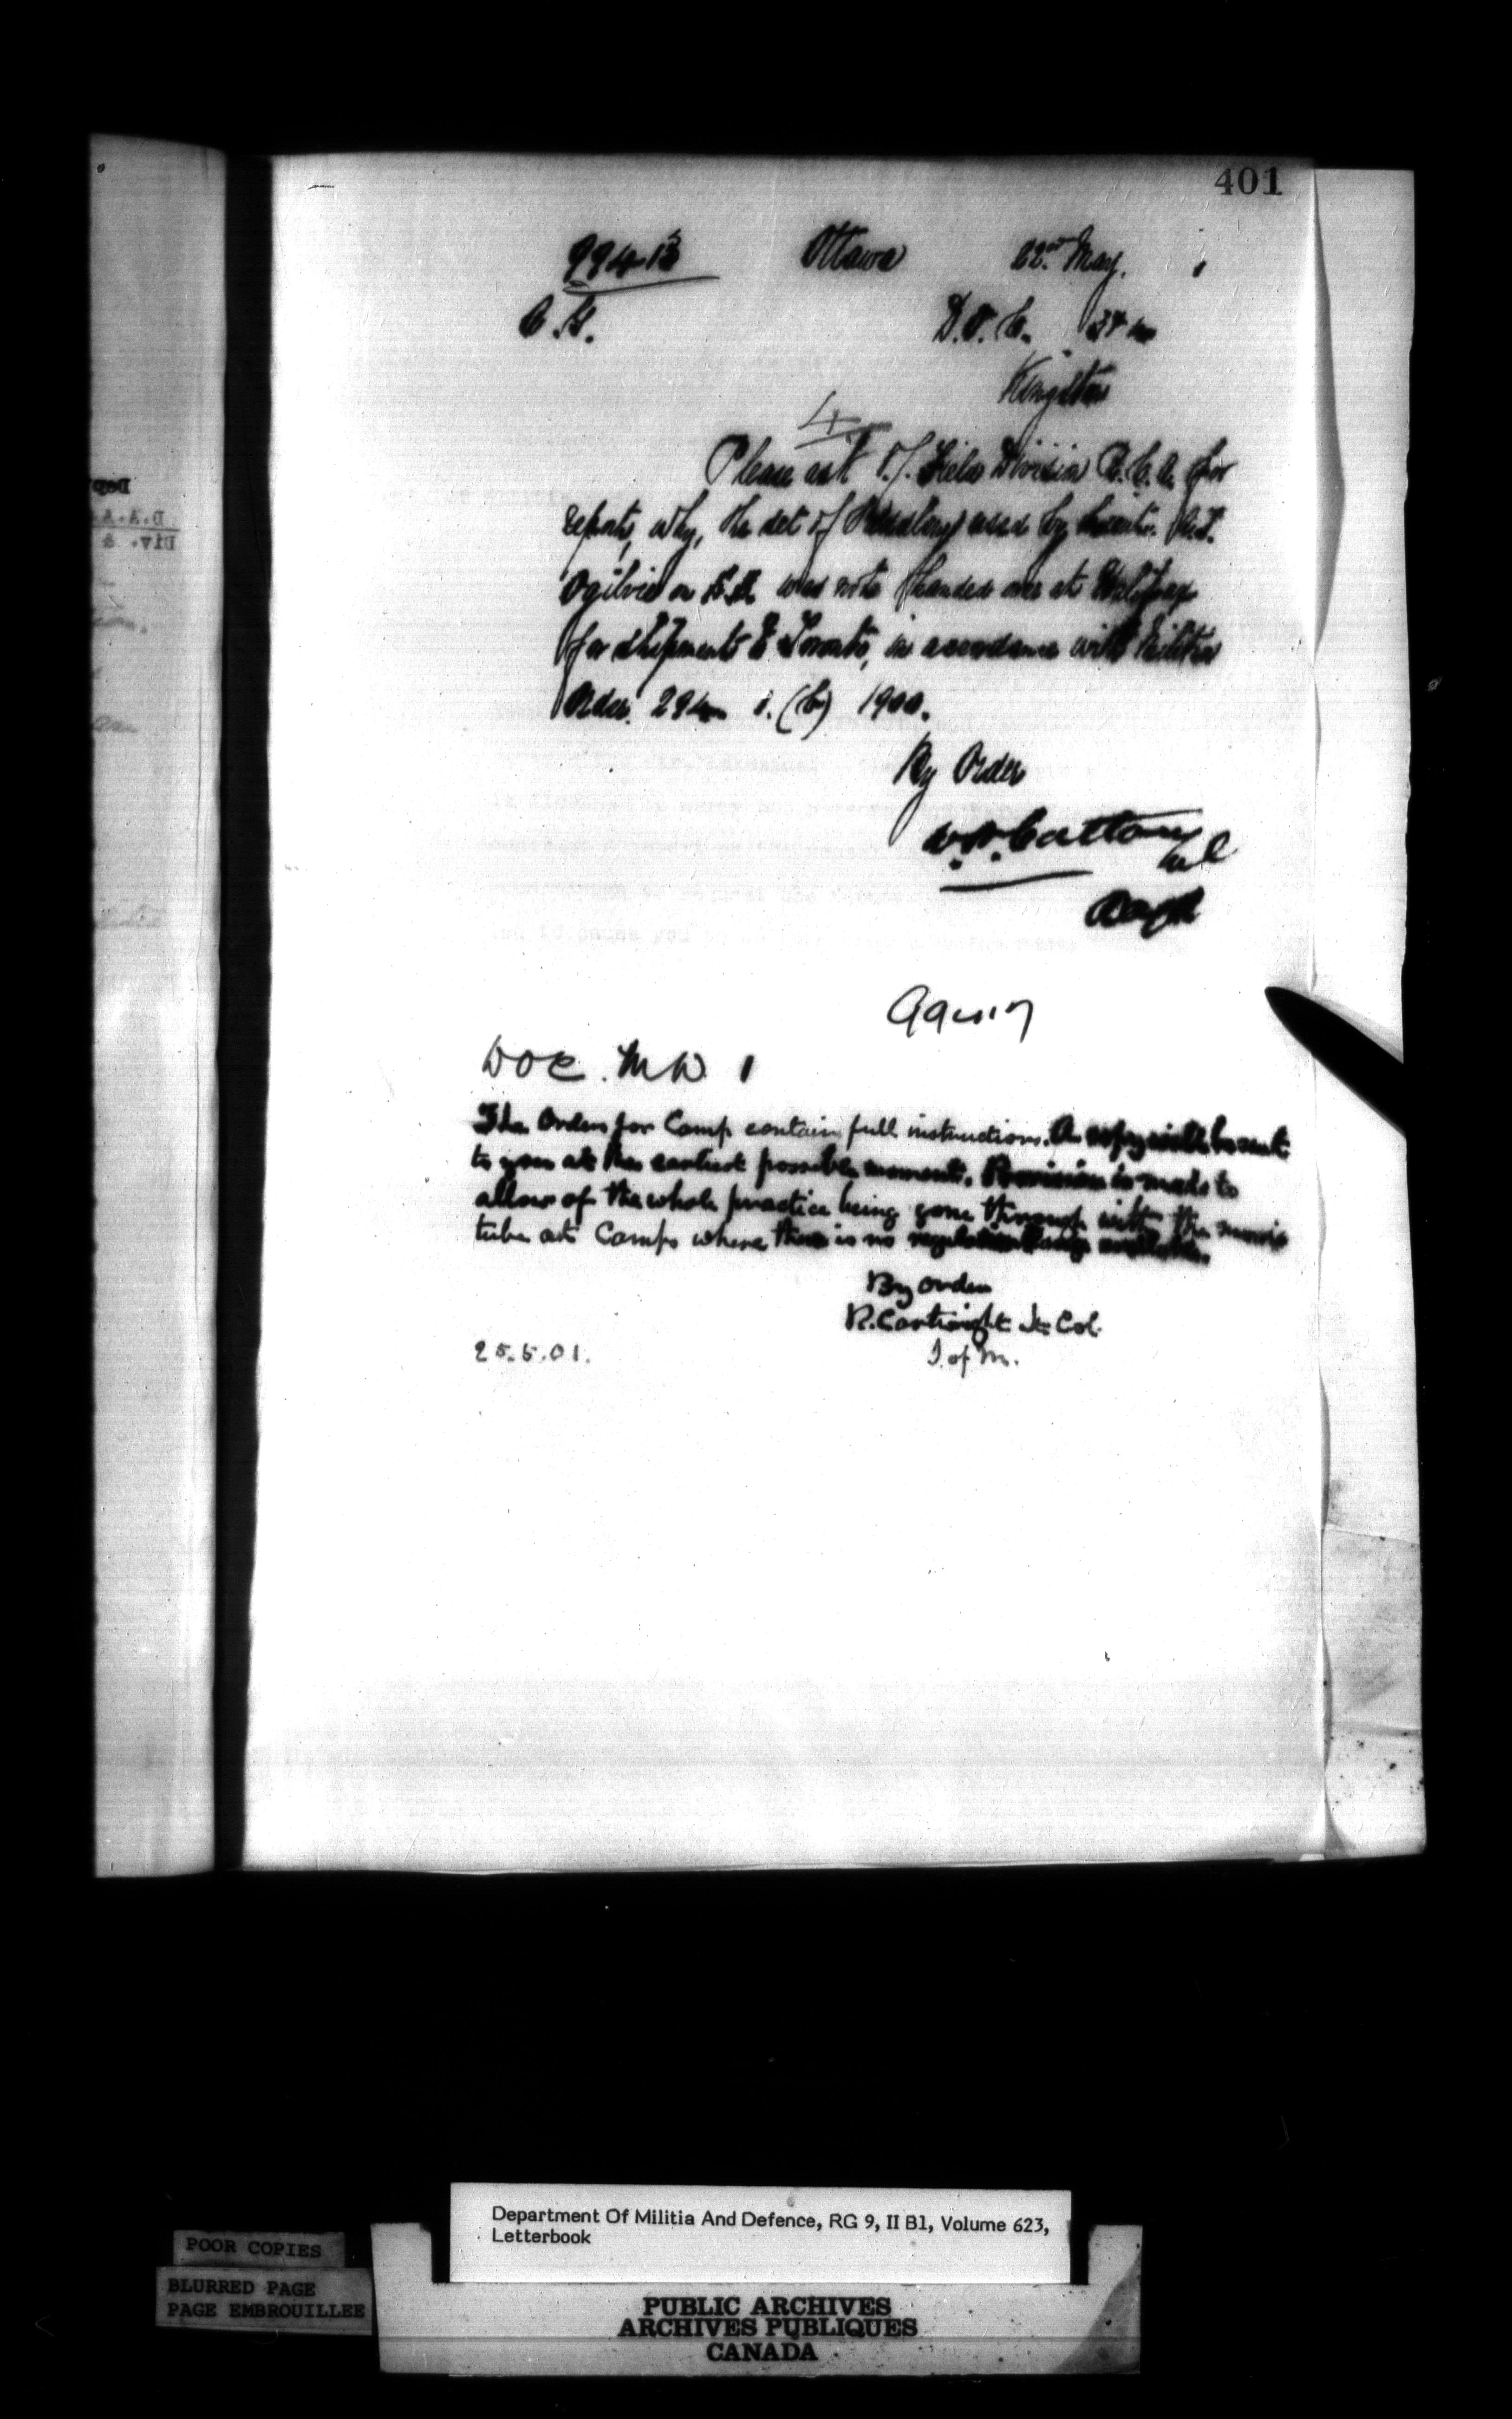 401
99413 Ottawa 22nd May. 1
C.G.
D.O.C. 3 & 4
Kingston
4
Please ask O.C. Field Division R.C.A. for
report, why, the set of Saddlery used by Lieut. A.T.
Ogilvie on S.S. was not handed over at Halifax
for shipment to Toronto, in accordance with Militia
Order 294 1. (b) 1900.
By Order
Col
99417
DOC. MD 1
The Orders for Camp contain full instructions. A copy will be sent
to you at the earliest possible moment. Provision is made to
allow of the whole practice being gone through with the morris
tube at Camps where there is no regulation range available.
By order
R. Cartwright Lt Col.
25.5.01. I. of M.
D.A.A.
Div. &
Department Of Militia And Defence, RG 9, II B1, Volume 623,
Letterbook
POOR COPIES
BLURRED PAGE
PAGE EMBROUILLEE
PUBLIC ARCHIVES
ARCHIVES PUBLIQUES
CANADA